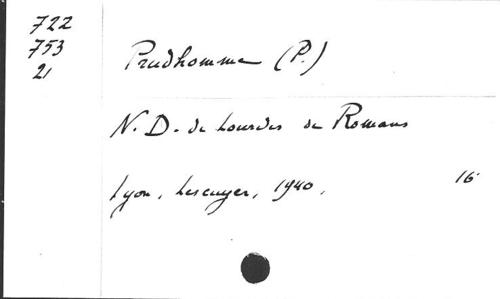 722
753
21
Prudhomme (P.)
N. D. de Lourdes de Romans
Lyon, Lescuyer, 1940,
16